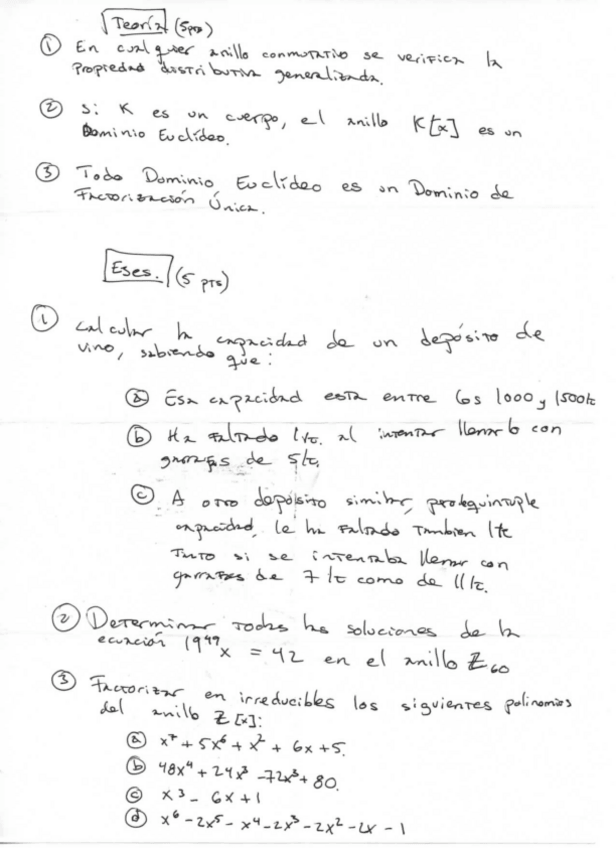 Teoría (5pts)
① En cualquier anillo conmutativo se verifica la
propiedad distributiva generalizada.
② Si K es un cuerpo, el anillo K[x] es un
Dominio Euclídeo.
③ Todo Dominio Euclídeo es un Dominio de
Factorización Única.
Ejes. (5 pts)
① Calcular la capacidad de un depósito de
vino, sabiendo que:
ⓐ Esa capacidad esta entre los 1000 y 1500 lt
ⓑ Ha faltado 1 lt. al intentar llenarlo con
garrafas de 5 lt.
ⓒ A otro depósito similar, pero quintuple
capacidad, le ha faltado tambien 1 lt
tanto si se intentaba llenar con
garrafas de 7 lt como de 11 lt.
② Determinar todas las soluciones de la
ecuación 19⁴⁹x = 42 en el anillo Z₆₀
③ Factorizar en irreducibles los siguientes polinomios
del anillo Z[x]:
ⓐ x⁷ + 5x⁶ + x² + 6x + 5.
ⓑ 48x⁴ + 24x³ - 72x³ + 80.
ⓒ x³ - 6x + 1
ⓓ x⁶ - 2x⁵ - x⁴ - 2x³ - 2x² - 2x - 1